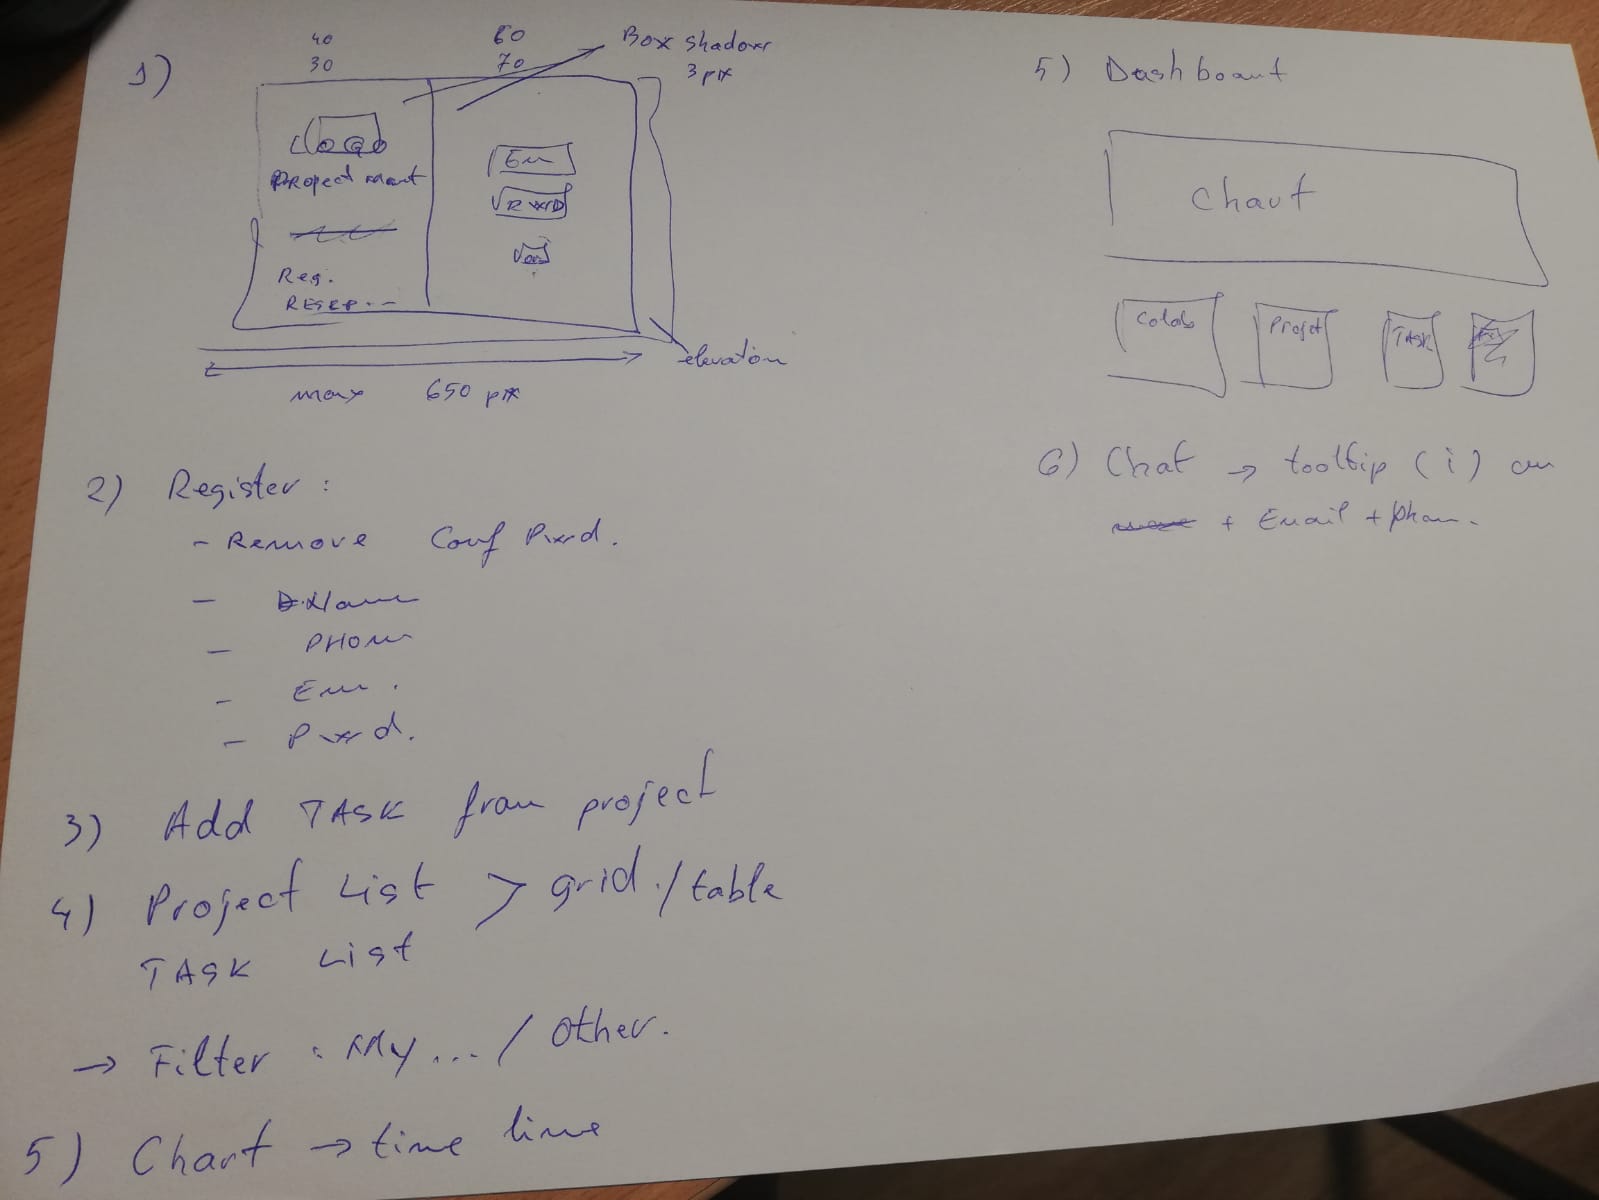 1)
40 60
30 70
Box shadow
3 px
Logo
Project
Em
Reg.
elevation
max 650 px
2) Register :
- Remove Conf Pwrd.
- Name
- Phon
- Em .
- Pwrd.
3) Add TASK from project
4) Project List > grid / table
TASK List
→ Filter : My ... / other.
5) Chart → time line
5) Dashboard
Chart
Colab Projet TASK
6) Chat → tooltip (i) on
+ Email + phon.